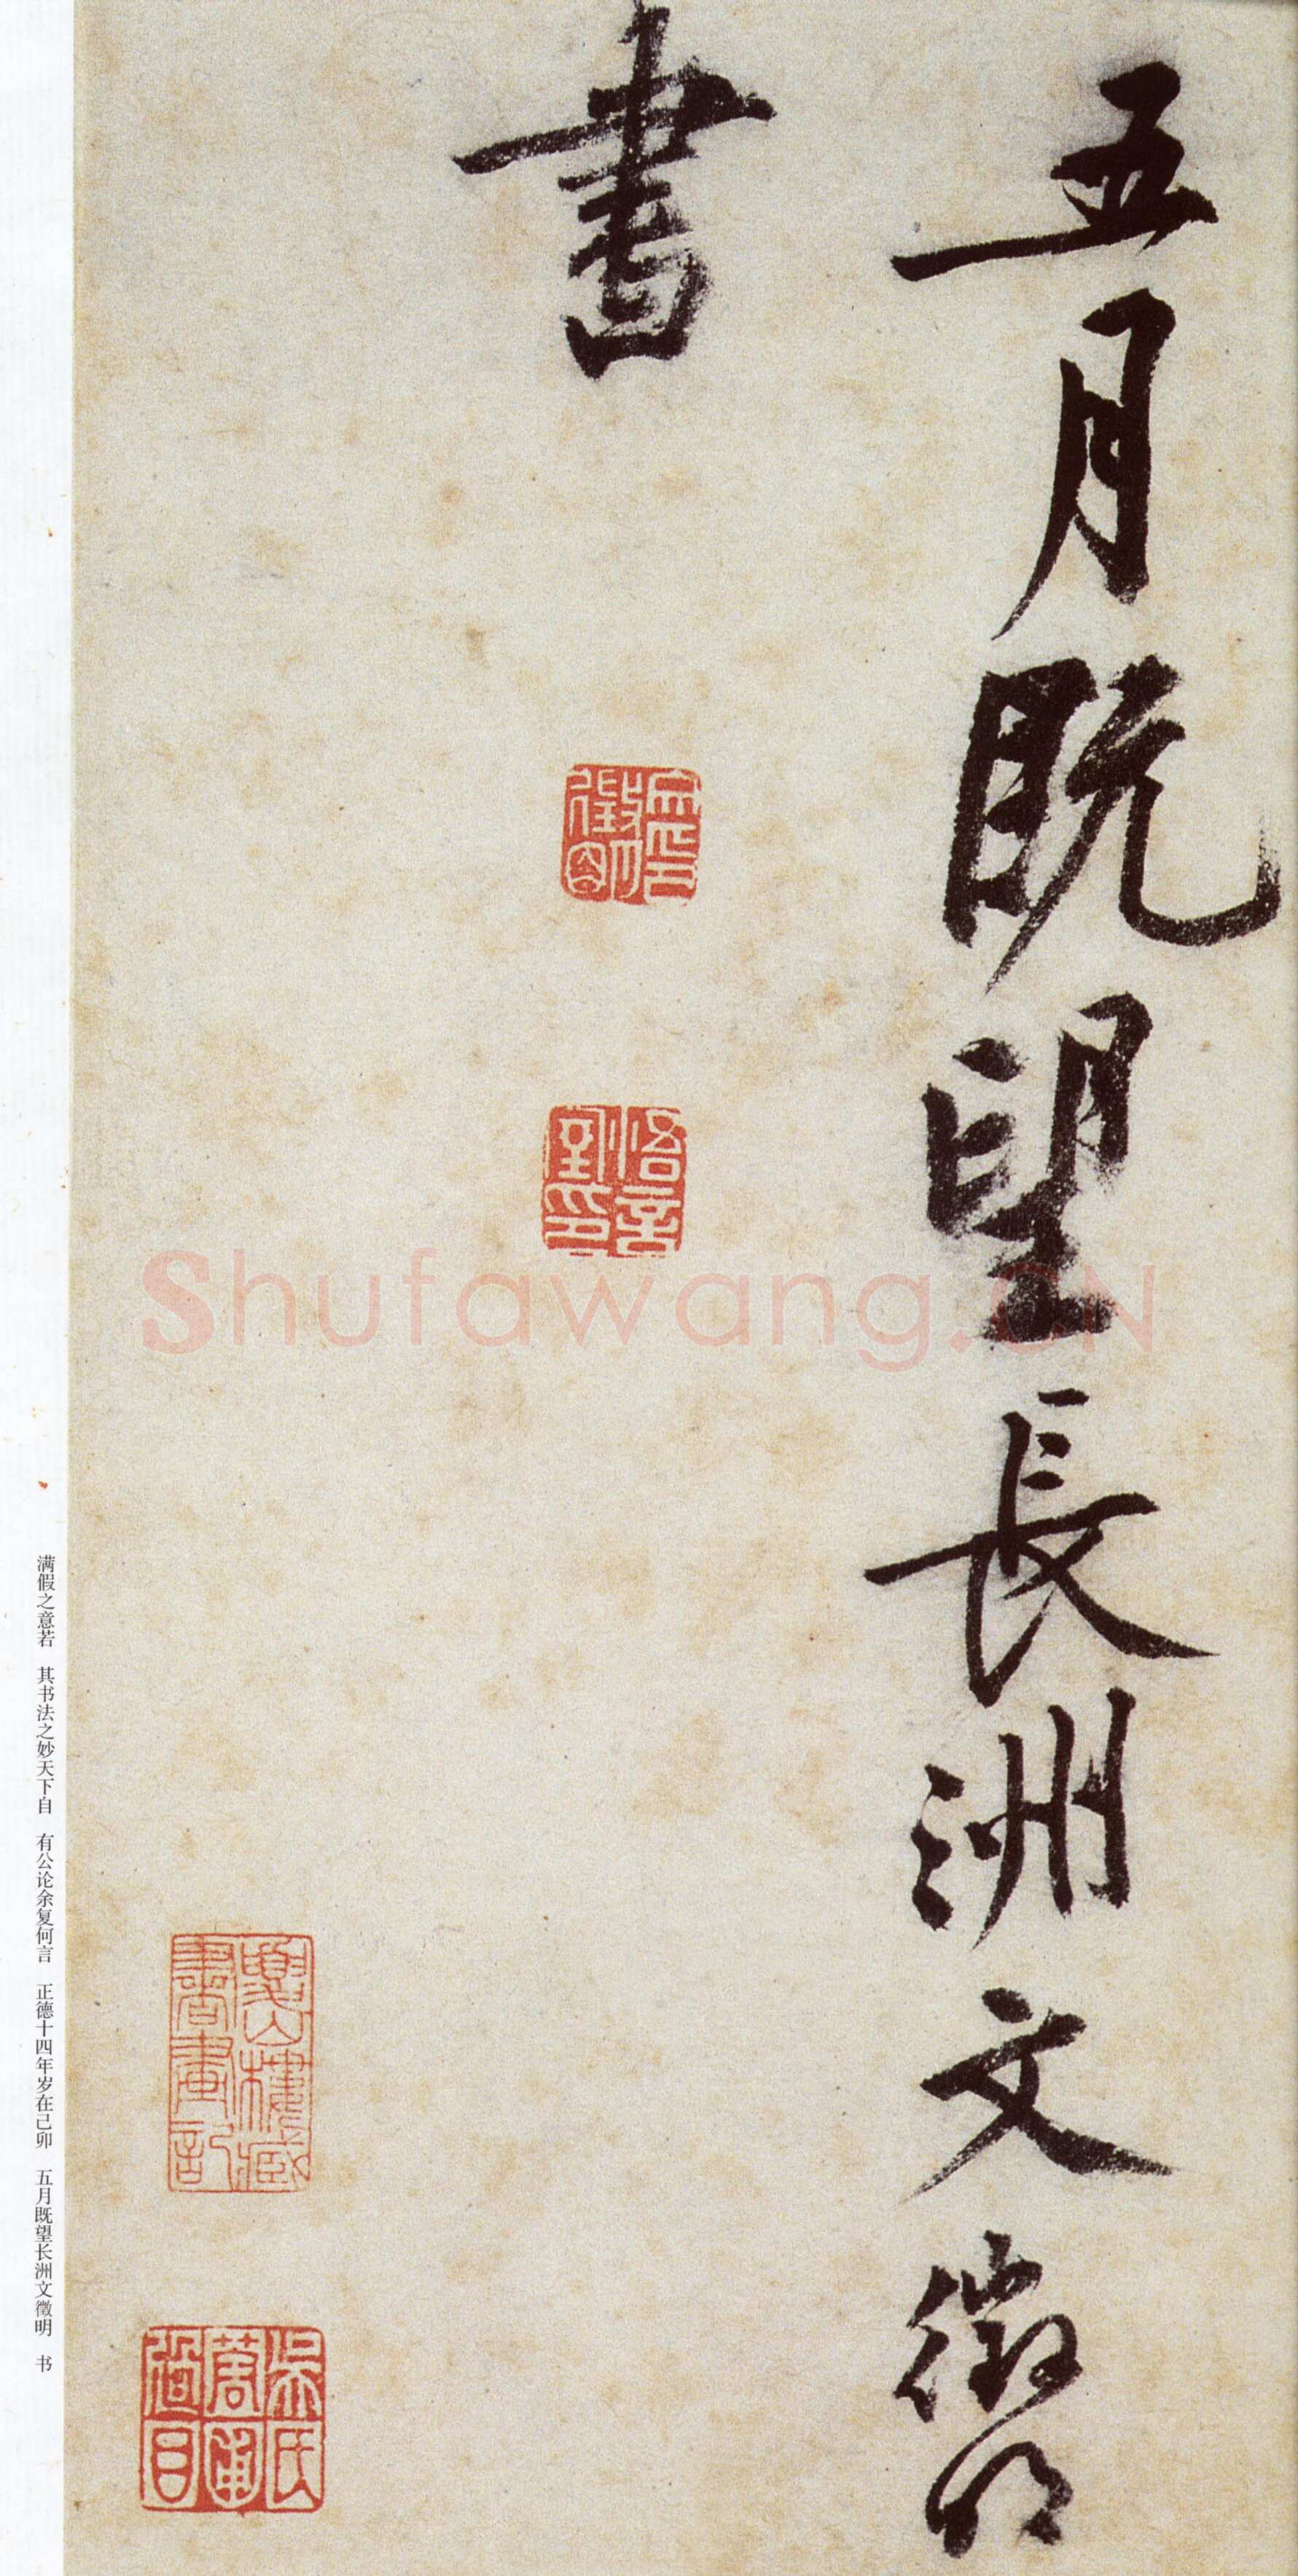 五月既望長洲文徵明
書
徵明印
悟言室印
書畫記
吳氏
Shufawang.CN
满假之意若 其书法之妙天下自 有公论余复何言 正德十四年岁在己卯 五月既望长洲文徵明 书